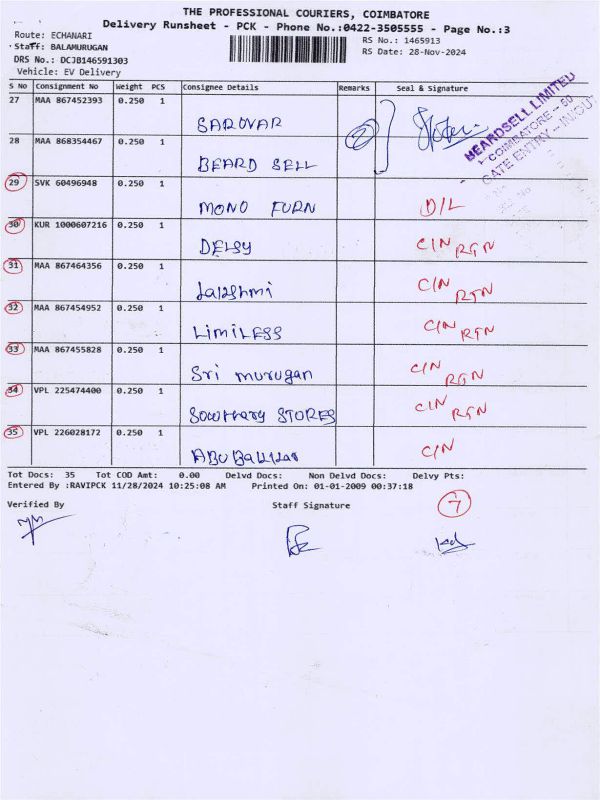 THE PROFESSIONAL COURIERS, COIMBATORE
Delivery Runsheet - PCK - Phone No.:0422-3505555 - Page No.:3
Route: ECHANARI
RS No.: 1465913
Staff: BALAMURUGAN
RS Date: 28-Nov-2024
DRS No.: DCJB146591303
Vehicle: EV Delivery
S No Consignment No Weight PCS Consignee Details Remarks Seal & Signature
27 MAA 867452393 0.250 1 SAROVAR
2
BEARDSELL LIMITED
COIMBATORE - 50
GATE ENTRY - IN/OUT
28 MAA 868354467 0.250 1 BEARD SELL
29 SVK 60496948 0.250 1 MONO FURN D/L
30 KUR 1000607216 0.250 1 DELSY C/N RGN
31 MAA 867464356 0.250 1 Lakshmi C/N RTN
32 MAA 867454952 0.250 1 LIMILESS C/N RGN
33 MAA 867455828 0.250 1 Sri murugan C/N RGN
34 VPL 225474400 0.250 1 STORES C/N RGN
35 VPL 226028172 0.250 1 C/N
Tot Docs: 35 Tot COD Amt: 0.00 Delvd Docs: Non Delvd Docs: Delvy Pts:
Entered By :RAVIPCK 11/28/2024 10:25:08 AM Printed On: 01-01-2009 00:37:18
Verified By Staff Signature 7